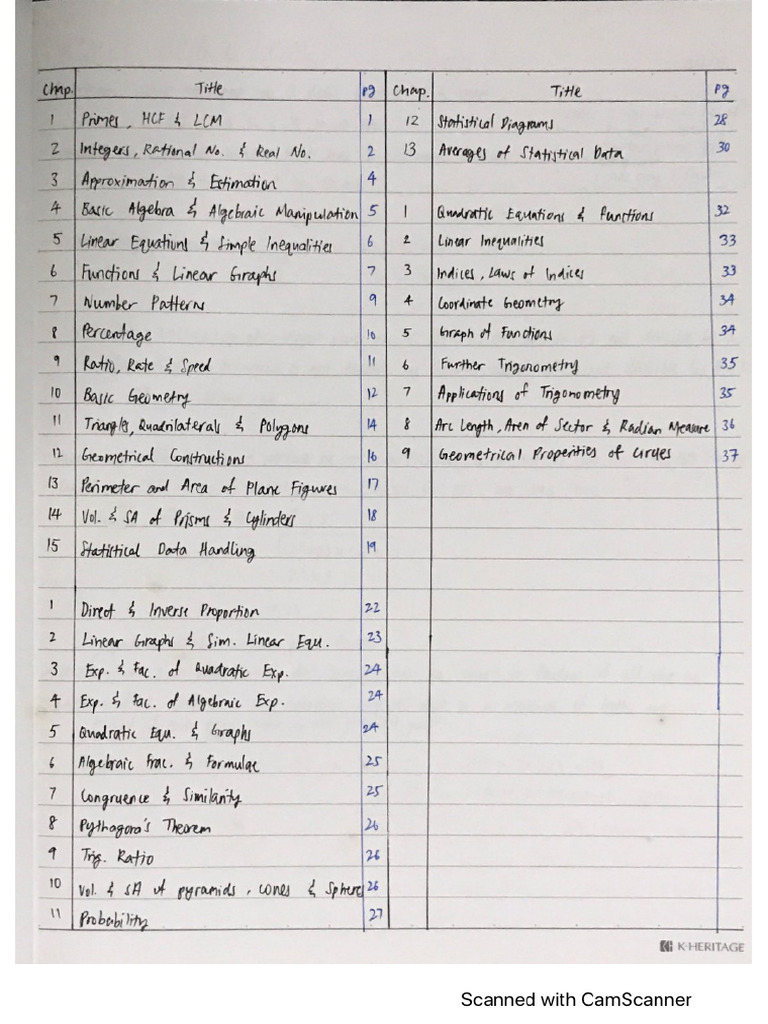 Chap. Title pg
1 Primes, HCF & LCM 1
2 Integers, Rational No. & Real No. 2
3 Approximation & Estimation 4
4 Basic Algebra & Algebraic Manipulation 5
5 Linear Equations & Simple Inequalities 6
6 Functions & Linear Graphs 7
7 Number Patterns 9
8 Percentage 10
9 Ratio, Rate & Speed 11
10 Basic Geometry 12
11 Triangles, Quadrilaterals & Polygons 14
12 Geometrical Constructions 16
13 Perimeter and Area of Plane Figures 17
14 Vol. & SA of Prisms & Cylinders 18
15 Statistical Data Handling 19
1 Direct & Inverse Proportion 22
2 Linear Graphs & Sim. Linear Equ. 23
3 Exp. & Fac. of Quadratic Exp. 24
4 Exp. & Fac. of Algebraic Exp. 24
5 Quadratic Equ. & Graphs 24
6 Algebraic Frac. & Formulae 25
7 Congruence & Similarity 25
8 Pythagora's Theorem 26
9 Trig. Ratio 26
10 Vol. & SA of pyramids, cones & Sphere 26
11 Probability 27
Chap. Title pg
12 Statistical Diagrams 28
13 Averages of Statistical Data 30
1 Quadratic Equations & Functions 32
2 Linear Inequalities 33
3 Indices, Laws of Indices 33
4 Coordinate Geometry 34
5 Graph of Functions 34
6 Further Trigonometry 35
7 Applications of Trigonometry 35
8 Arc Length, Area of Sector & Radian Measure 36
9 Geometrical Properties of Circles 37
K·HERITAGE
Scanned with CamScanner